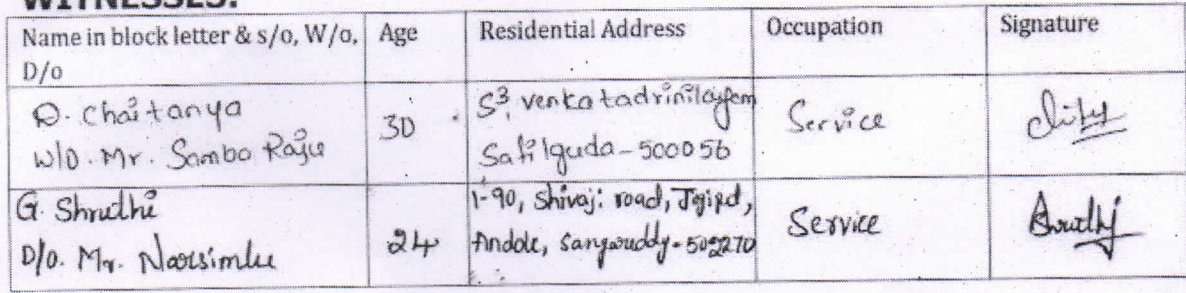 WITNESSES:
Name in block letter & s/o, W/o, D/o Age Residential Address Occupation Signature
D. Chaitanya
W/O. Mr. Sambo Raju
30
S3, venkatadrinilayam
Safilguda - 500056
Service
G. Shrudhi
D/o. Mr. Narsimlu
24
1-90, Shivaji road, Jgipd,
Andole, Sangareddy - 502270
Service
Shrudhi